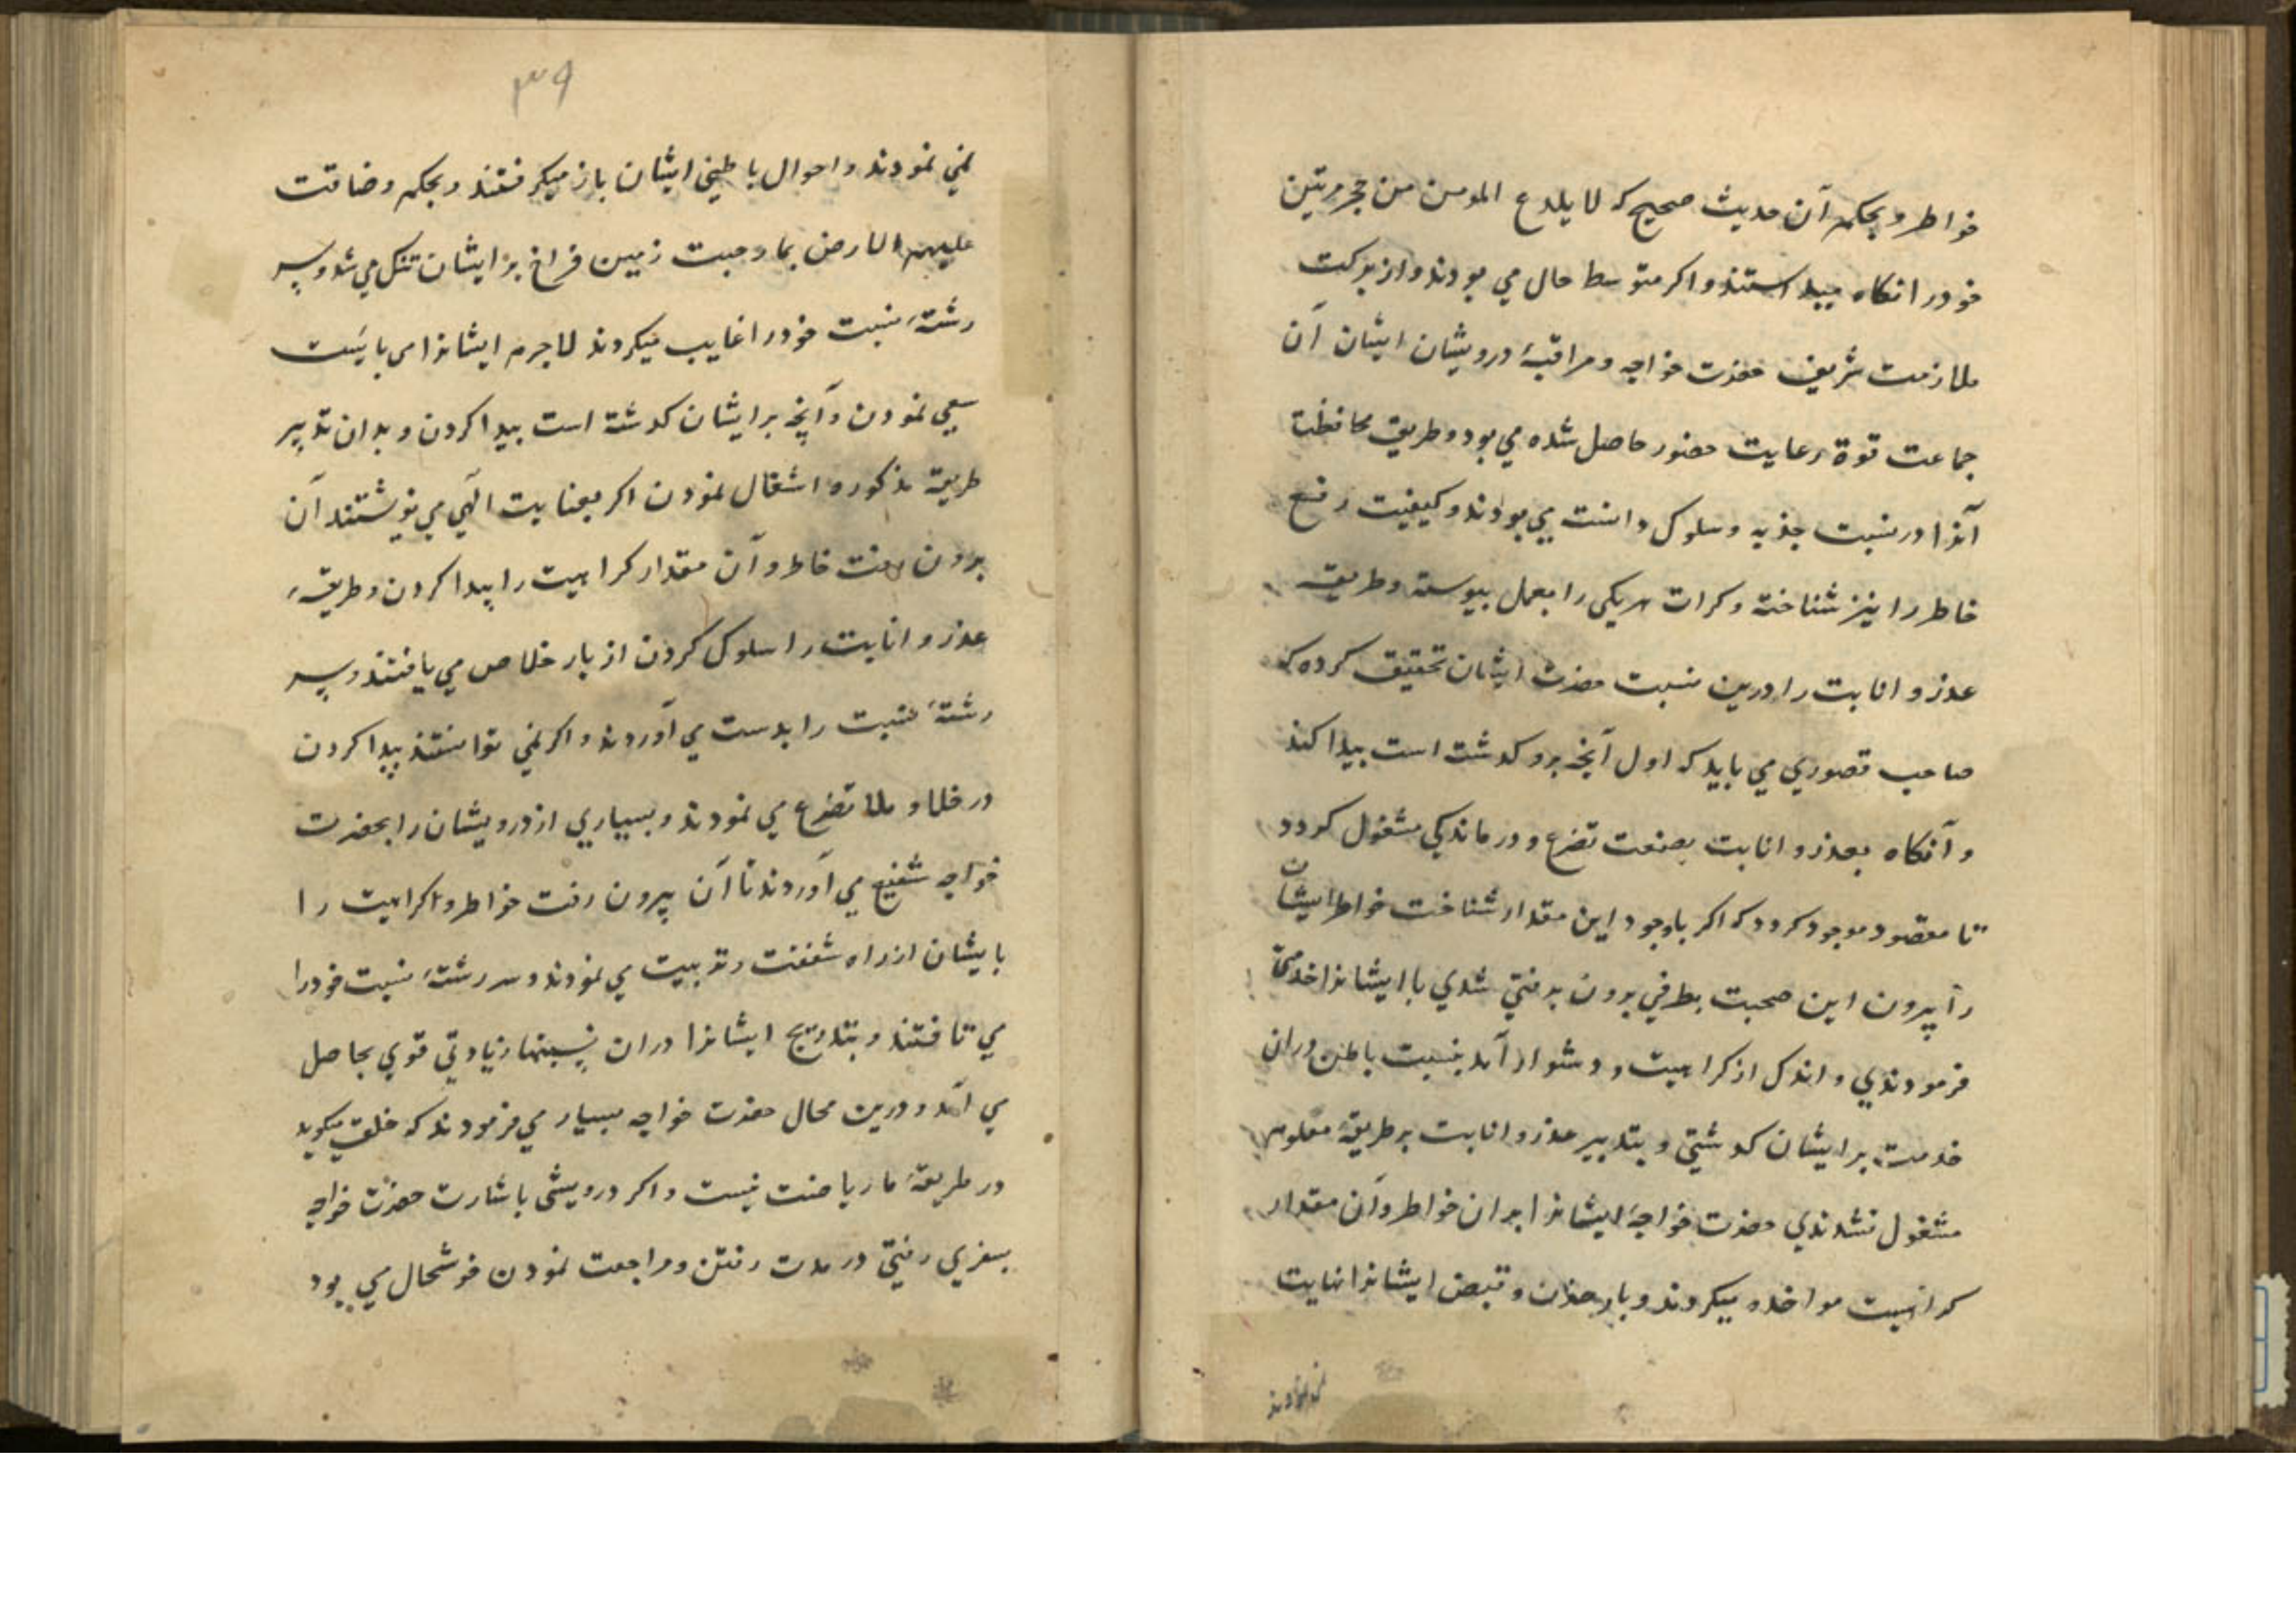 خواطر و بحکم آن حدیث صحیح که لا یلدع المومن من حجر مرتین
خود را نگاه میداستند و اکر متوسط حال می بودند و از برکت
ملازمت شریف حضرت خواجه و مراقبهٔ درویشان ایشان آن
جماعت قوة رعایت حضور حاصل شده می بود و طریق محافظت
آنرا در نسبت جذبه و سلوک دانست می بودند و کیفیت رفع
خاطر را نیز شناخته و کرات هریکی را بعمل بیوسته و طریقه
عذر و انابت را درین نسبت حضرت ایشان تحقیق کرده که
صاحب قصوری می باید که اول آنچه برو کدشت است بیدا کند
و آنکاه بعذر و انابت بصنعت تضرع و درماندکی مشغول کردد
تا مقصود موجود کردد که اکر باوجود این مقدار شناخت خواطر ایشان
را پیرون این صحبت بطرفی برون برفتی شدی با ایشانرا خدمتی
فرمودندی و اندک از کراهیت و دشوار آمد بنسبت باطن دران
خدمت بر ایشان کدشتی و بتدبیر عذر و انابت بر طریقهٔ معلوم
مشغول نشدندی حضرت خواجهٔ ایشانرا بدان خواطر و آن مقدار
کراهیت مواخذه میکردند و بار حذن و قبض ایشانرا نهایت
۳۹
نمی نمودند و احوال باطنی ایشان باز میکرفتند و بحکم وضاقت
علیهم الارض بما رحبت زمین فراخ بر ایشان تنک می شد و سر
رشتهٔ نسبت خود را غایب میکردند لاجرم ایشانرا می بایست
سعی نمودن و آنچه بر ایشان کدشته است بیدا کردن و بدان تدبیر
طریقهٔ مذکوره اشتغال نمودن اکر بعنایت الهی می نوشتند آن
برون رفت خاطر و آن مقدار کراهیت را پیدا کردن و طریقهٔ
عذر و انابت را سلوک کردن از بار خلاص می یافتند و سر
رشتهٔ نسبت را بدست می آوردند و اکر نمی توانستند پیدا کردن
در خلا و ملا تضرع می نمودند و بسیاری از درویشان را بحضرت
خواجه شفیع می آوردند تا آن پیرون رفت خواطر و اکراهیت را
بایشان از راه شفقت و تربیت می نمودند و سر رشتهٔ نسبت خود را
می تافتند و بتدریج ایشانرا دران نسبتها زیادتی قوی بحاصل
می آمد و درین محال حضرت خواجه بسیار می فرمودند که خلق میکوید
در طریقهٔ ما ریاضت نیست و اکر درویشی باشارت حضرت خواجه
بسفری رفتی در مدت رفتن و مراجعت نمودن خوشحال می بود